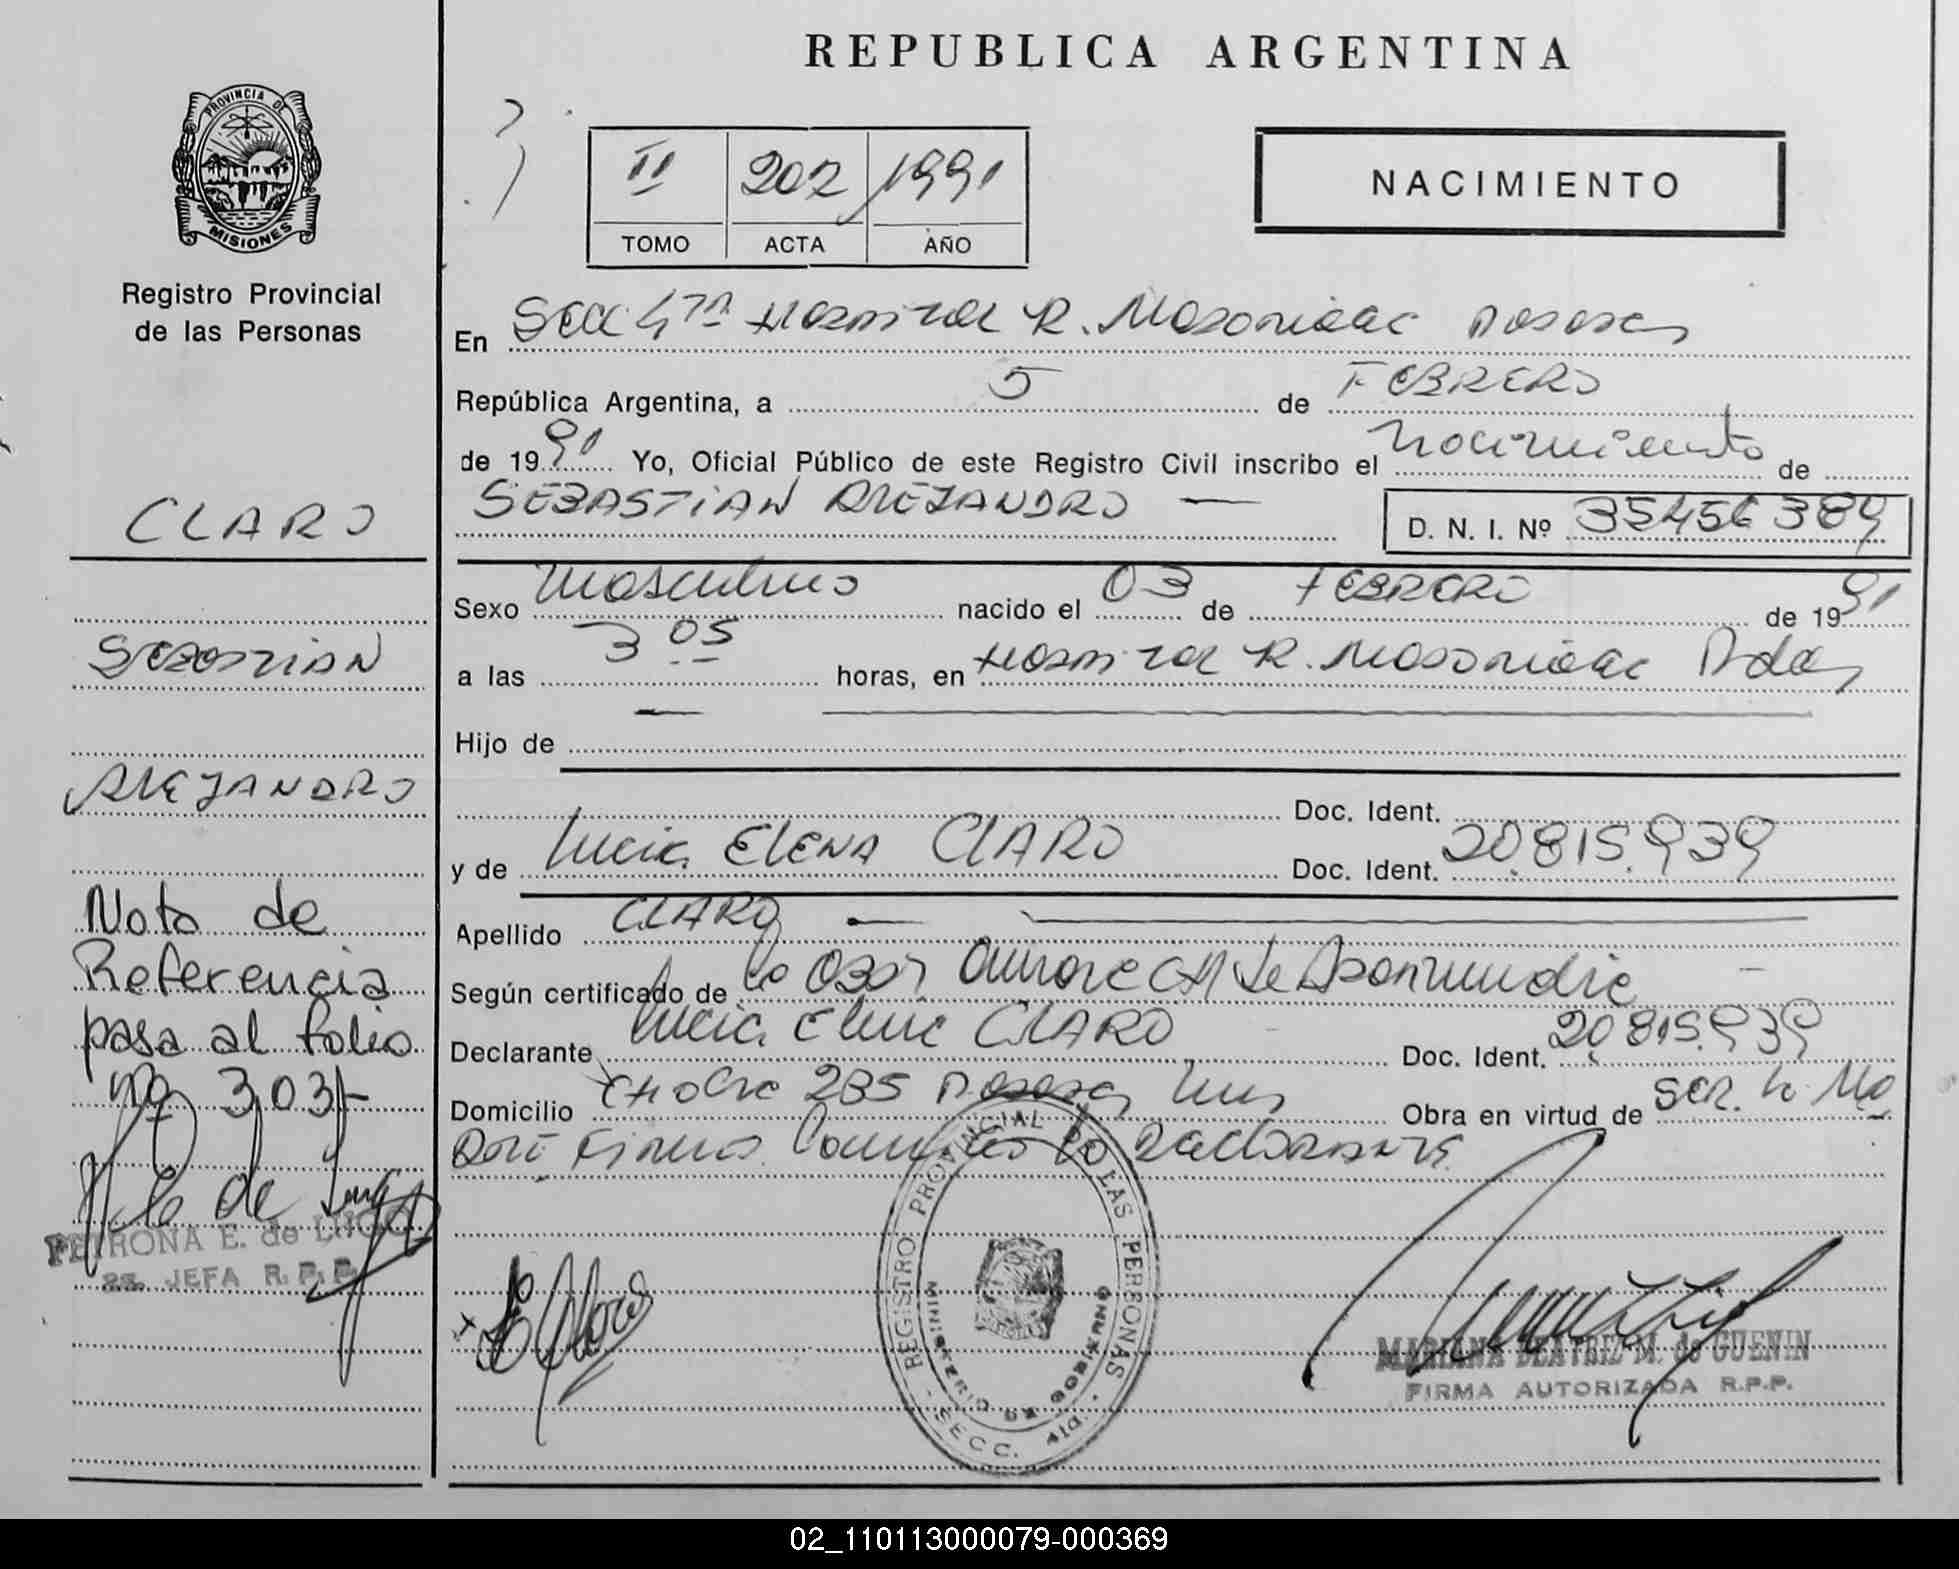 REPUBLICA ARGENTINA
PROVINCIA DE
MISIONES
Registro Provincial
de las Personas
II 202 1991
TOMO ACTA AÑO
NACIMIENTO
En Secc 4ta Hospital R. Madariaga Posadas
República Argentina, a 5 de FEBRERO
de 1991 Yo, Oficial Público de este Registro Civil inscribo el Nacimiento de
SEBASTIAN ALEJANDRO
D. N. I. Nº 35456389
Sexo Masculino nacido el 03 de FEBRERO de 1991
a las 3 05 horas, en Hospital R. Madariaga Pdas
Hijo de
Doc. Ident.
y de Lucia ELENA CLARO Doc. Ident. 20.815.939
Apellido CLARO
Según certificado de la Obst
Declarante Lucia Elena CLARO Doc. Ident. 20.815.939
Domicilio 285 Posadas Obra en virtud de ser la
firma la Declarante
CLARO
SEBASTIAN
ALEJANDRO
Nota de
Referencia
pasa al folio
Nº 303
PETRONA E. de LUGO
JEFA R.P.P.
REGISTRO PROVINCIAL DE LAS PERSONAS
MINISTERIO DE GOBIERNO
SECC. 4ta.
MARIANA BEATRIZ M. de GUENIN
FIRMA AUTORIZADA R.P.P.
02_110113000079-000369